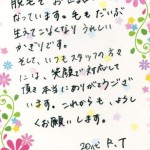 脱毛でお世話に
なっています。毛もだいぶ
生えてこなくなりうれしい
かぎりです。
そして、いつもスタッフの方々
には、笑顔で対応して
頂き本当にありがとうござ
います。これからも、よろし
くお願いします。
20代 R.T